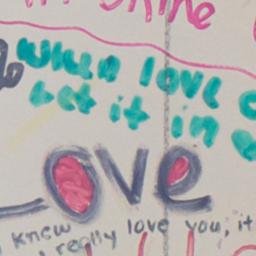 Shine
when love
let it in
Love
knew
I really love you, it